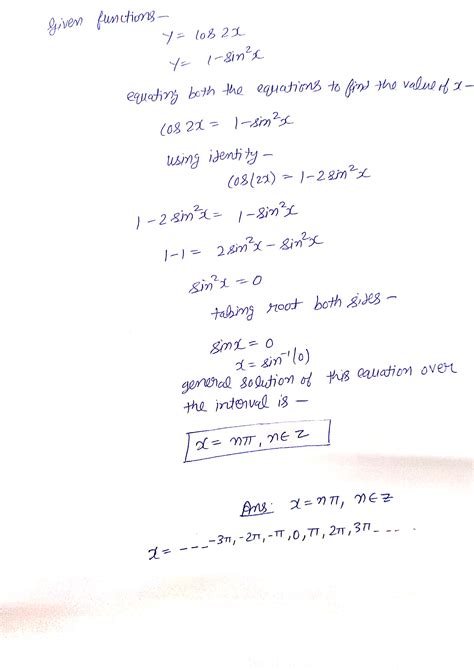 Given functions—
y = cos 2x
y = 1-sin²x
equating both the equations to find the value of x-
cos 2x = 1-sin²x
using identity —
cos(2x) = 1-2sin²x
1-2sin²x = 1-sin²x
1-1 = 2sin²x - sin²x
sin²x = 0
taking root both sides —
sinx = 0
x = sin⁻¹(0)
general solution of this equation over
the interval is —
x = nπ, n∈z
Ans: x=nπ, n∈z
x = ----3π,-2π,-π,0,π,2π,3π-----